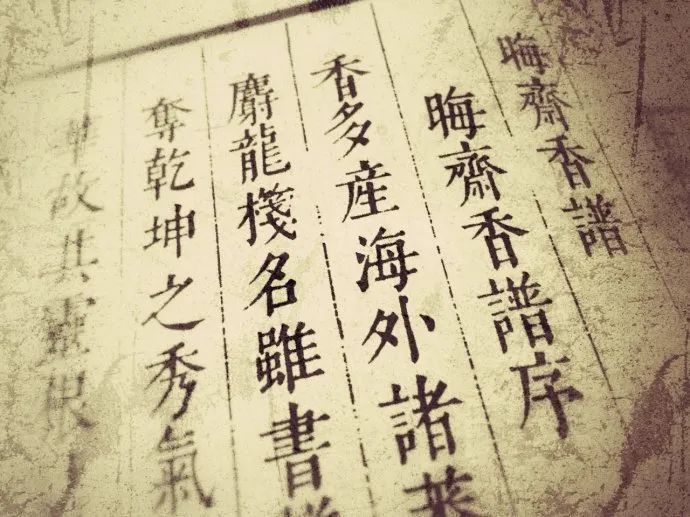 晦齋香譜
晦齋香譜序
香多産海外諸蕃
麝龍棧名雖書
奪乾坤之秀氣
故其靈根